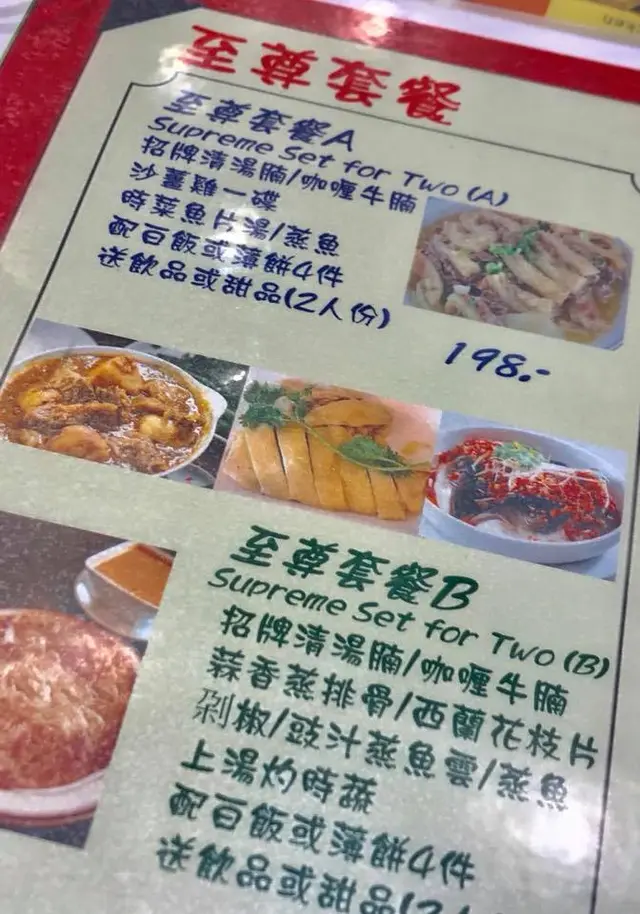 至尊套餐
至尊套餐A
Supreme Set for Two (A)
招牌清湯腩/咖喱牛腩
沙薑雞一碟
時菜魚片湯/蒸魚
配白飯或薄餅4件
送飲品或甜品(2人份)
198.-
至尊套餐B
Supreme Set for Two (B)
招牌清湯腩/咖喱牛腩
蒜香蒸排骨/西蘭花枝片
剁椒/豉汁蒸魚雲/蒸魚
上湯灼時蔬
配白飯或薄餅4件
送飲品或甜品(2人